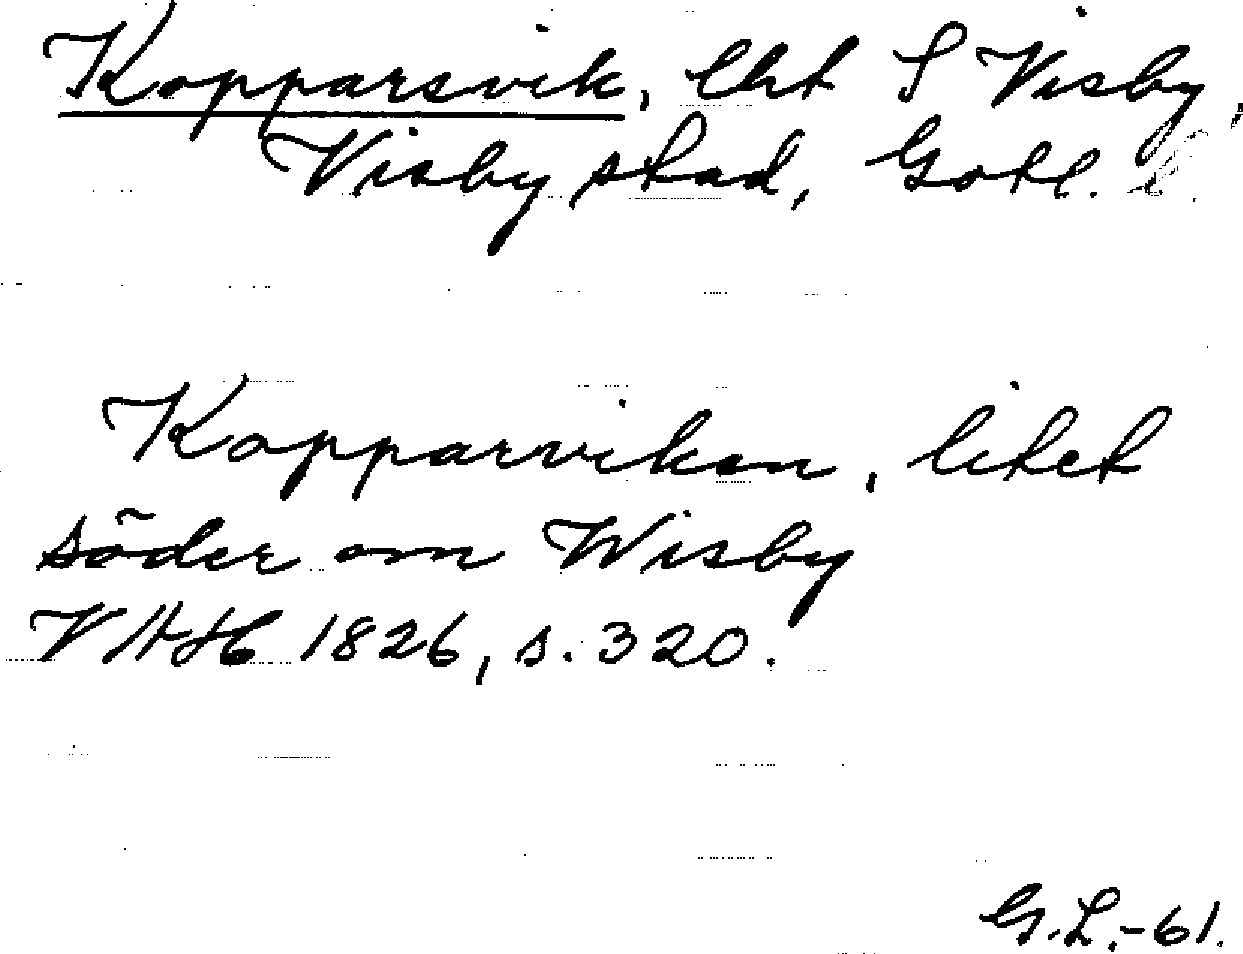 Kopparsvik, lht S Visby,
Visby stad, Gotl. l.
Kopparviken, litet
söder om Wisby
VAH 1826, s. 320.
G.L.-61.